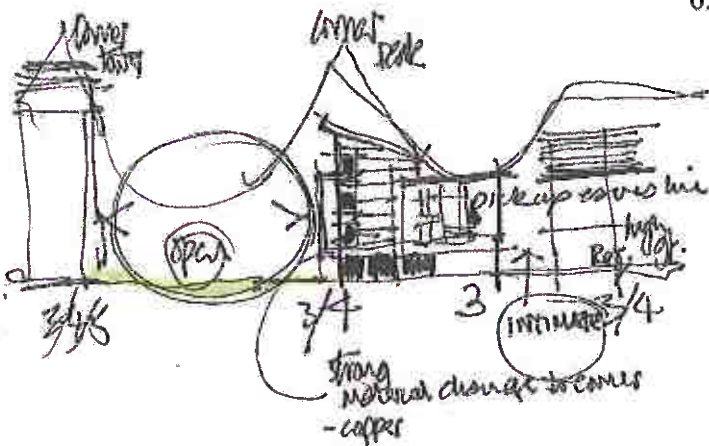 corner
corner
peak
pick up eaves line
high
open
3/4/5
3/4
3
INTIMATE
3/4
strong
material change to corner
- copper